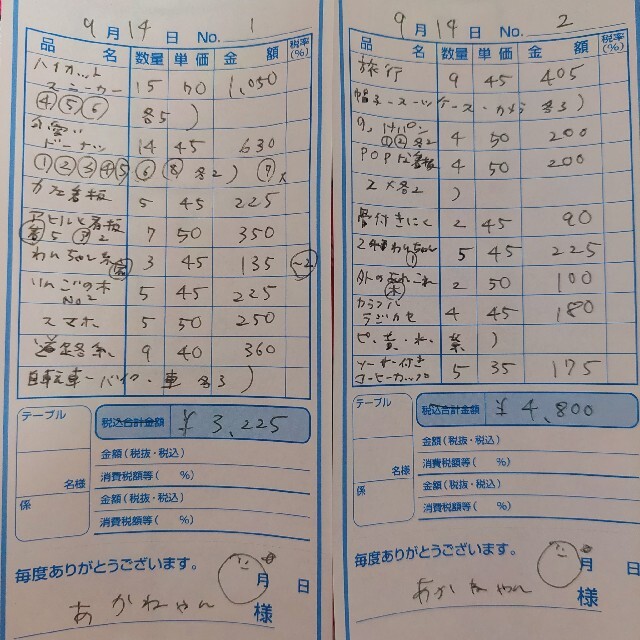 9月14日 No. 1
品名 数量 単価 金額 税率(%)
ハイカット
スニーカー 15 70 1,050
④⑤⑥ 各5 )
ドーナツ 14 45 630
①②③④⑤⑥⑧ 各2) ⑦
カフェ看板 5 45 225
アヒルと看板
5 2 7 50 350
3 45 135
りんごの木
No2 5 45 225
スマホ 5 50 250
道路系 9 40 360
自転車・バイク・車 各3 )
テーブル
名様
係
税込合計金額 ¥3,225
金額(税抜・税込)
消費税額等( %)
金額(税抜・税込)
消費税額等( %)
毎度ありがとうございます。
月 日
あかねちゃん 様
9月14日 No. 2
品名 数量 単価 金額 税率(%)
旅行 9 45 405
帽子・スーツケース・カメラ 各3)
①② 各2 4 50 200
POPな看板 4 50 200
各2 )
骨付きにく 2 45 90
① 5 45 225
外のあれこれ
木 2 50 100
カラフル
ラジカセ 4 45 180
ピ・黄・水・ )
ソーサー付き
コーヒーカップ 5 35 175
テーブル
名様
係
税込合計金額 ¥4,800
金額(税抜・税込)
消費税額等( %)
金額(税抜・税込)
消費税額等( %)
毎度ありがとうございます。
月 日
あかねちゃん 様